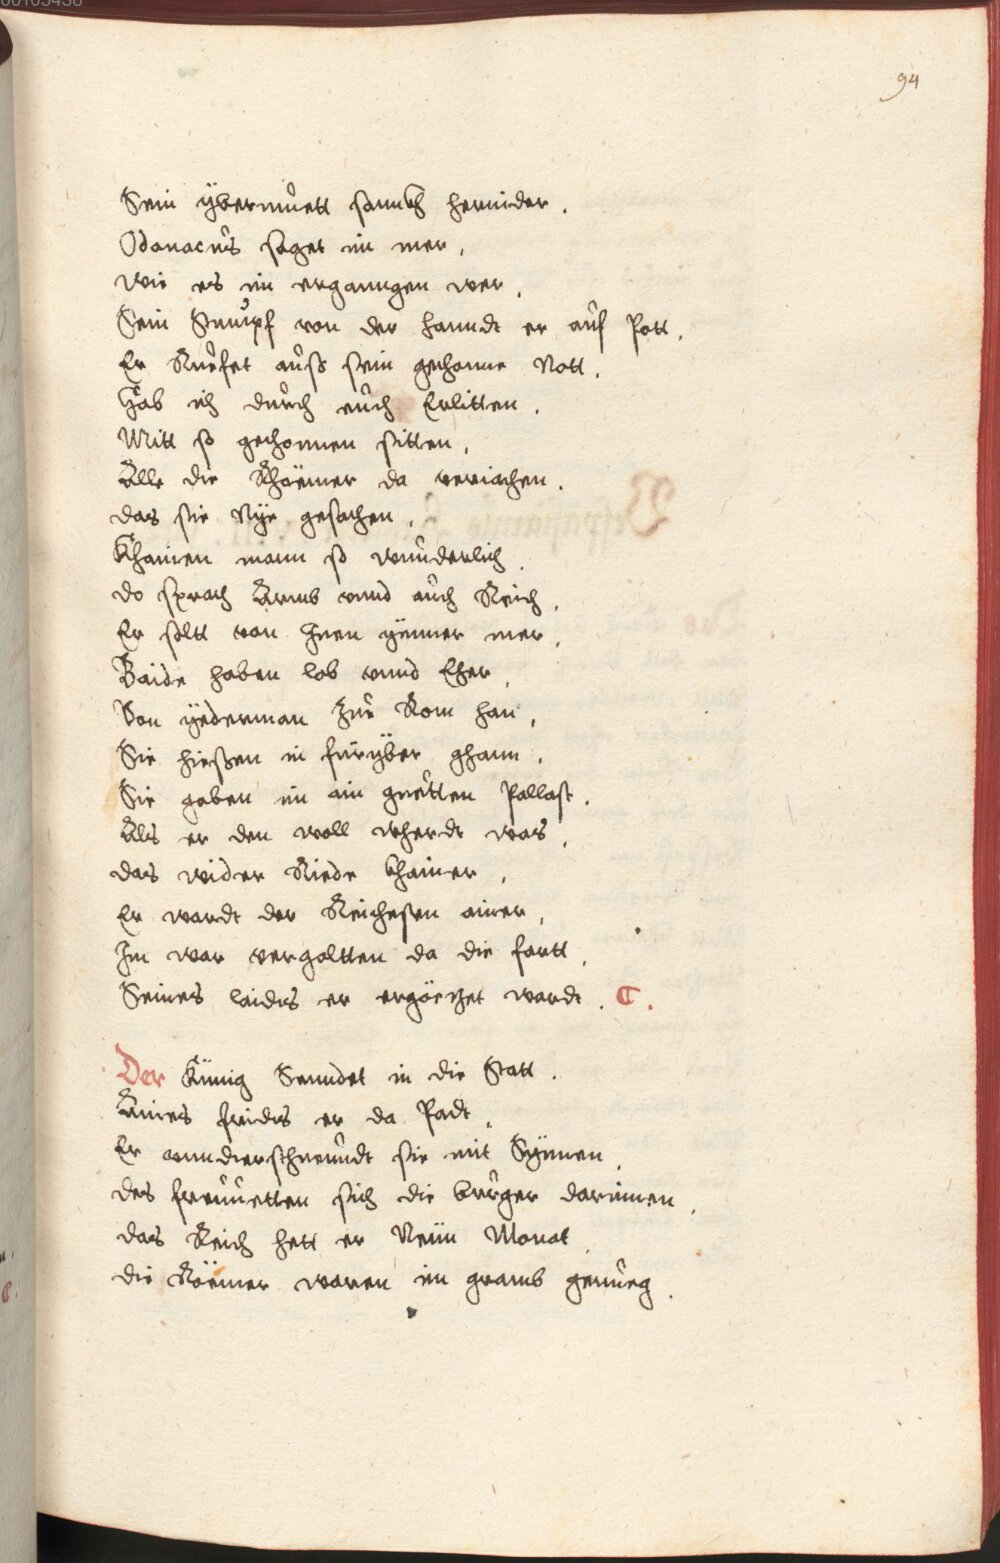 94
Sein ybermuett sannckh hernider.
Odonacus saget im mer,
Wie es im erganngen wer,
Sein Stumpf von der hanndt er auf Pott.
Er Ruefet auß sein gethanne Nott.
Hab ich durch euch Erlitten.
Mitt so gethonnen sitten,
Alle die Rhöemer da veriachen.
das sie Nÿe gesachen,
Khainen mann so wunderlich
do sprach Armb vnnd auch Reich,
Er soltt von Inen ÿmmer mer,
Baide haben lob vnnd Eher,
Von ÿederman Zue Rom han,
Sie hießen in fürÿber ghann,
Sie gaben im ain guetten Pallast.
Als er den woll wherdt was,
das wider Riede khainer,
Er wardt der Reichesten ainer,
Im war vergoltten da die fartt,
Seines laides er ergöetzet wardt. C.
Der Künig Senndet in die Statt.
Aines frides er da Padt,
Er vnndterschnaundt sie mit Sÿnnen,
des freuuetten sich die burger darinnen,
das Reich hett er Neün Monat
die Röemer waren im gramb genueg.